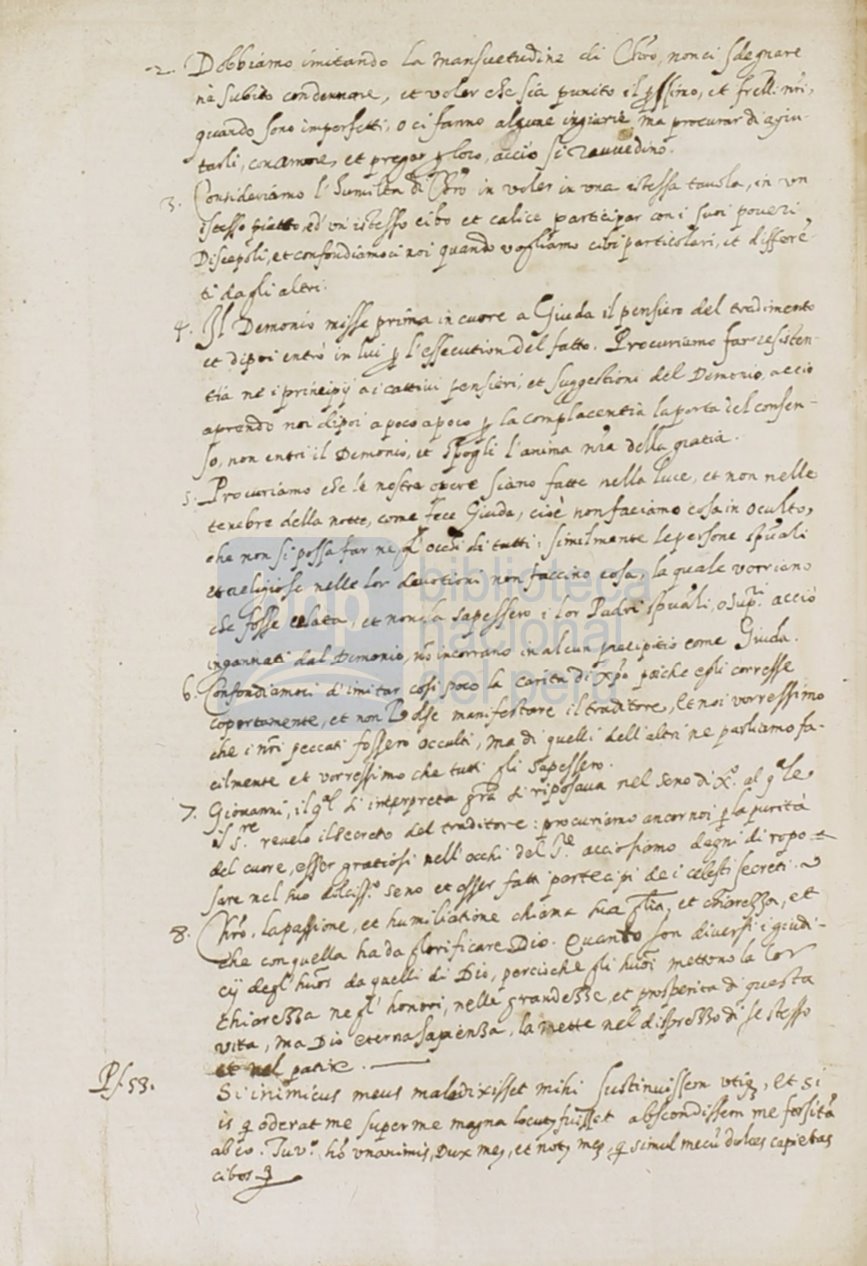 2. Dobbiamo imitando la mansuetudine di Chro, non ci sdegnare
ne subito condennare, et voler che sia punito il pssimo, et frelli nri,
quando sono imperfetti, o ci fanno alcune ingiurie, ma procurar di agiu-
tarli, con amore, et pregar p loro, acciò si ravvedino.
3. Consideriamo l'humiltà di Chro in voler in una istessa tavola, in un
istesso piatto, ed un istesso cibo et calice participar con i suoi poveri
Discepoli, et confondiamoci noi quando vogliamo cibi particolari, et differē-
ti dagli altri.
4. Il Demonio misse prima in cuore a Giuda il pensiero del tradimento
et dipoi entrò in lui p l'essecution del fatto. Procuriamo far resisten-
tia ne i principij a i cattivi pensieri, et suggestioni del Demonio, acciò
aprendo noi dipoi a poco a poco p la complacentia la porta del consen-
so, non entri il Demonio, et spogli l'anima nra della gratia.
5. Procuriamo che le nostre opere siano fatte nella luce, et non nelle
tenebre della notte, come fece Giuda, cioè non faciamo cosa in occulto,
che non si possa far ne gl'occhi di tutti; similmente le persone spuali
et religiose nelle lor devotioni non faccino cosa, la quale vorriano
che fosse celata, et non la sapessero i lor Padri spuali, o supri acciò
ingannati dal Demonio, nō incorrano in alcun precipitio come Giuda.
6. Confondiamoci d'imitar così poco la carità di Xpo poiche egli corresse
copertamente, et non volse manifestare il traditore, et noi vorressimo
che i nri peccati fossero occulti, ma di quelli dell'altri ne parliamo fa-
cilmente et vorressimo che tutti gli sapessero.
7. Giovanni, il qal si interpreta gra si riposava nel seno di Xo al qale
il Sre revelo il secreto del traditore: procuriamo ancor noi p la purità
del cuore, esser gratiosi nell'occhi del Sre acciò siamo degni di ripo-
sare nel suo dolcisso seno et esser fatti partecipi de i celesti secreti.
8. Chro, la passione, et humiliatione chiama sua glia, et chiarezza, et
che con quella ha da glorificare Dio. Quanto son diversi i giudi-
cij degl'huoi da quelli di Dio, percioche gli huoi mettono la lor
chiarezza ne gl'honori, nelle grandezze, et prosperità di questa
vita, ma Dio eterna sapienza, la mette nel disprezzo di se stesso
et nel patire.
Ps. 53. Si inimicus meus maledixisset mihi sustinuissem utiq, et si
is q oderat me super me magna locutus fuisset abscondissem me forsitā
ab eo. Tu vo hō unanimis, Dux meus, et notus meus, q simul mecū dulces capiebas
cibos
biblioteca
nacional
del perú
bnp